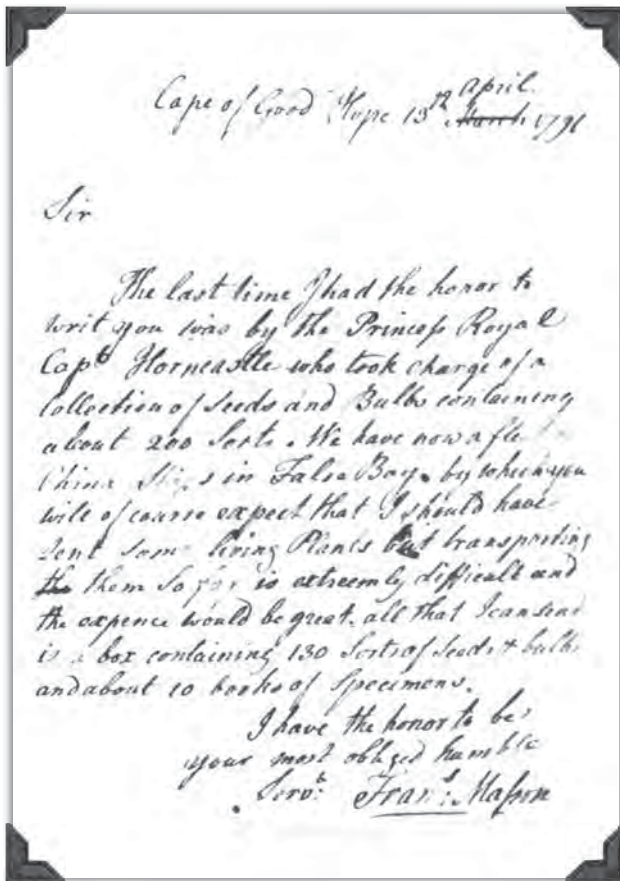 Cape of Good Hope 13th April
March 1791
Sir
The last time I had the honor to
writ you was by the Princess Royal
Capt Horncastle who took charge of a
Collection of Seeds and Bulbs containing
about 200 Sorts. We have now a
China in False Bay. by which you
will of course expect that I should have
sent some living Plants but transporting
the them so far is extreemly difficult and
the expence would be great. all that I can send
is a box containing 130 Sorts of Seeds & bulbs
and about 10 books of Specimens.
I have the honor to be
your most obliged humble
Servt. Frans. Masson